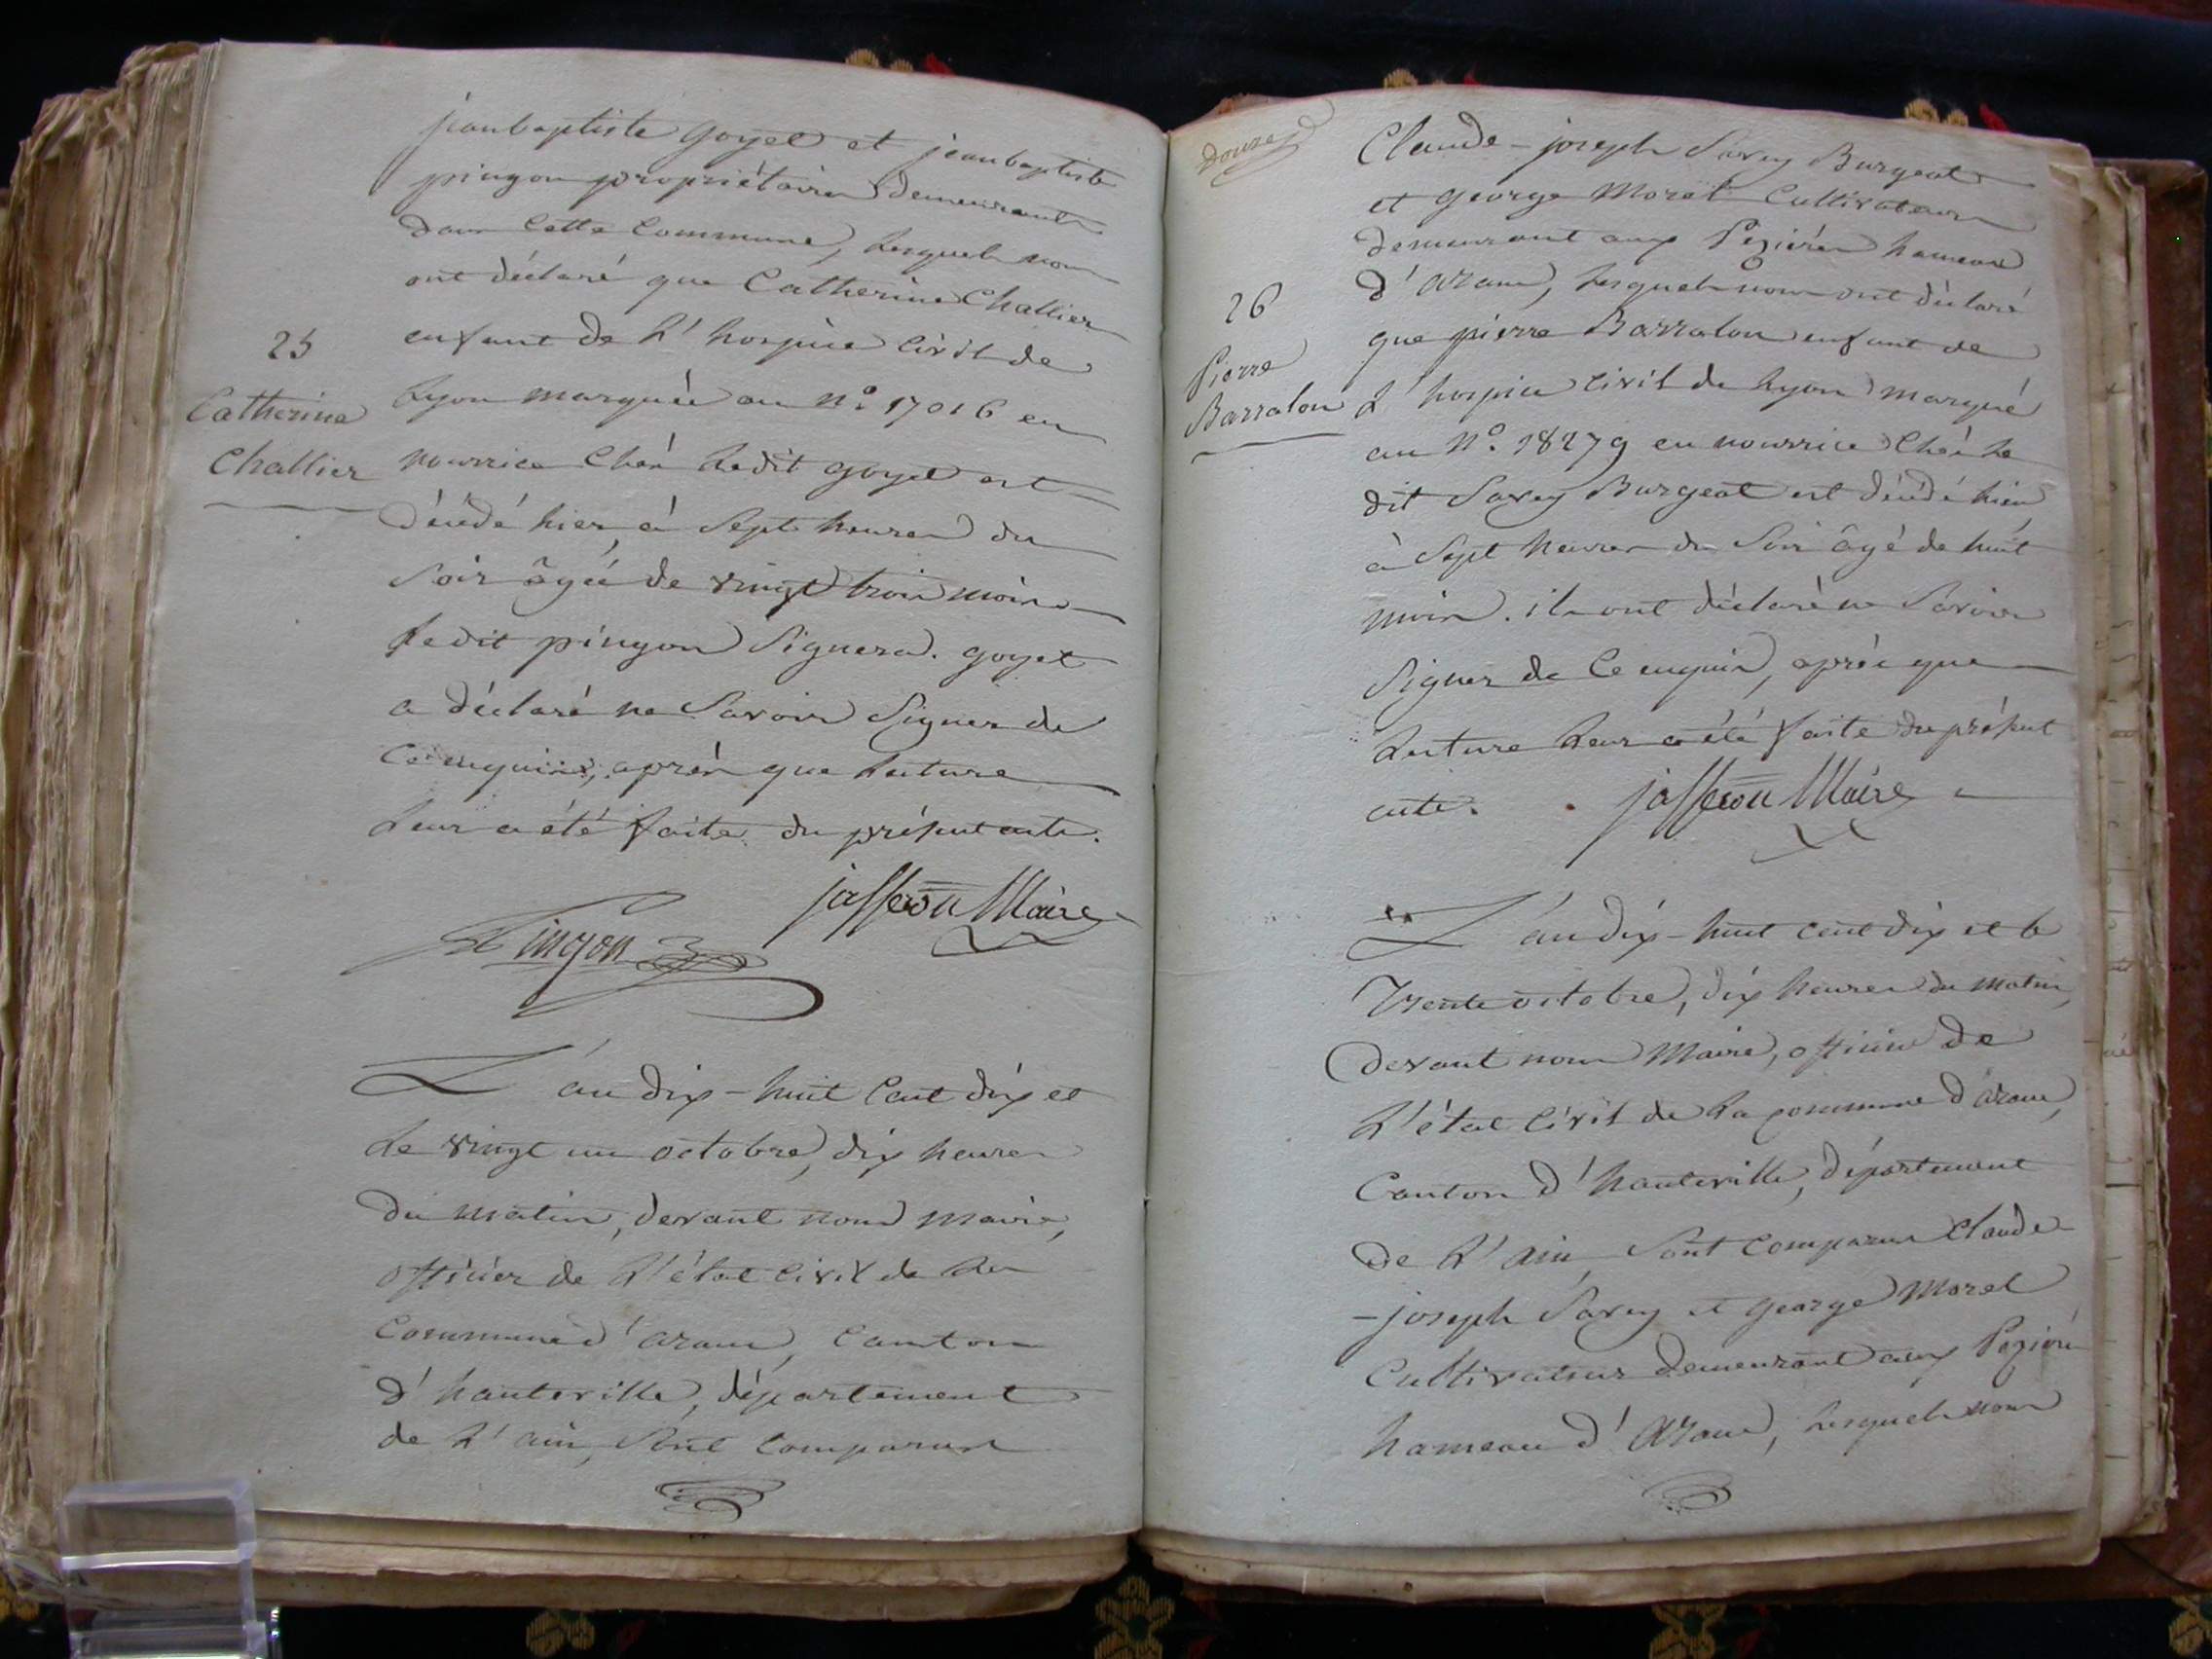 jeanbaptiste goyet et jeanbaptiste
pingon propriétaires demeurants
dans cette Commune, lesquels nous
ont déclaré que Catherine Challier
enfant de l'hospice civil de
25
Catherine
Challier
Lyon marquée au N° 17016 en
nourrice chés ledit goyet est
décédé hier, à sept heures du
soir âgée de vingt trois mois
ledit pingon signera. goyet
a déclaré ne savoir signer de
ce enquis, après que lecture
leur a été faite du présent acte.
jasseron Maire
Pingon
L'an dix-huit cent dix et
le vingt un octobre, dix heures
du matin, devant nous maire,
officier de l'état civil de la
Commune d'aranc, canton
d'hauteville, département
de l'ain, sont comparus
Douze
Claude-joseph Savey Burgeat
et george Morel Cultivateurs
demeurant aux Pézières hameau
d'aranc, lesquels nous ont déclaré
26
Pierre
Barralon
que pierre Barralon enfant de
l'hospice civil de Lyon marqué
au N° 18279 en nourrice chés le
dit Savey Burgeat est décédé hier
à sept heures du soir âgé de huit
mois. ils ont déclaré ne savoir
signer de ce enquis, après que
lecture leur a été faite du présent
acte.
jasseron Maire
L'an dix-huit cent dix et le
Trente octobre, dix heures du matin,
devant nous Maire, officier de
l'état civil de la commune d'aranc,
Canton d'hauteville, département
de l'ain, sont comparus Claude
-joseph Savey et george Morel
Cultivateurs demeurant aux Pézières
hameau d'aranc, lesquels nous